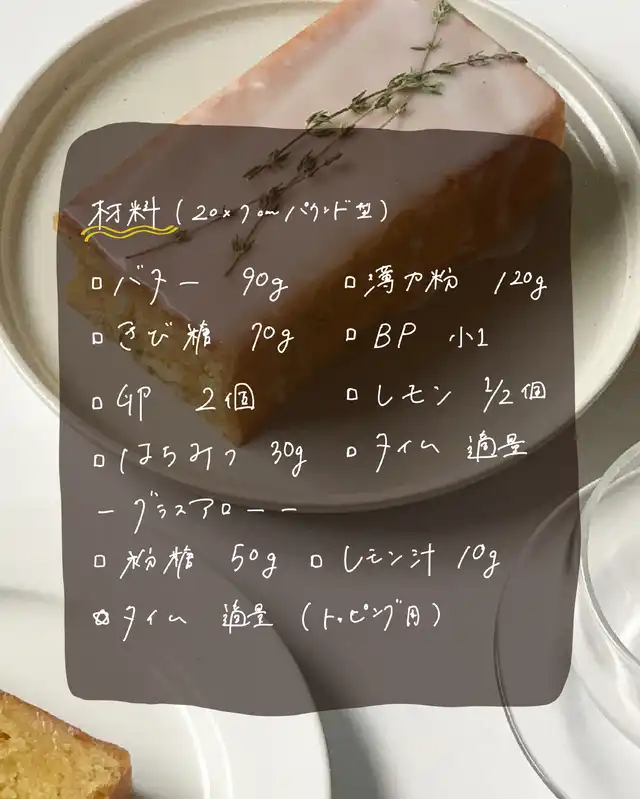 材料 (20×7cmパウンド型)
□ バター 90g □ 薄力粉 120g
□ きび糖 70g □ BP 小1
□ 卵 2個 □ レモン 1/2個
□ はちみつ 30g □ タイム 適量
ー グラスアロー ー
□ 粉糖 50g □ レモン汁 10g
□ タイム 適量 (トッピング用)